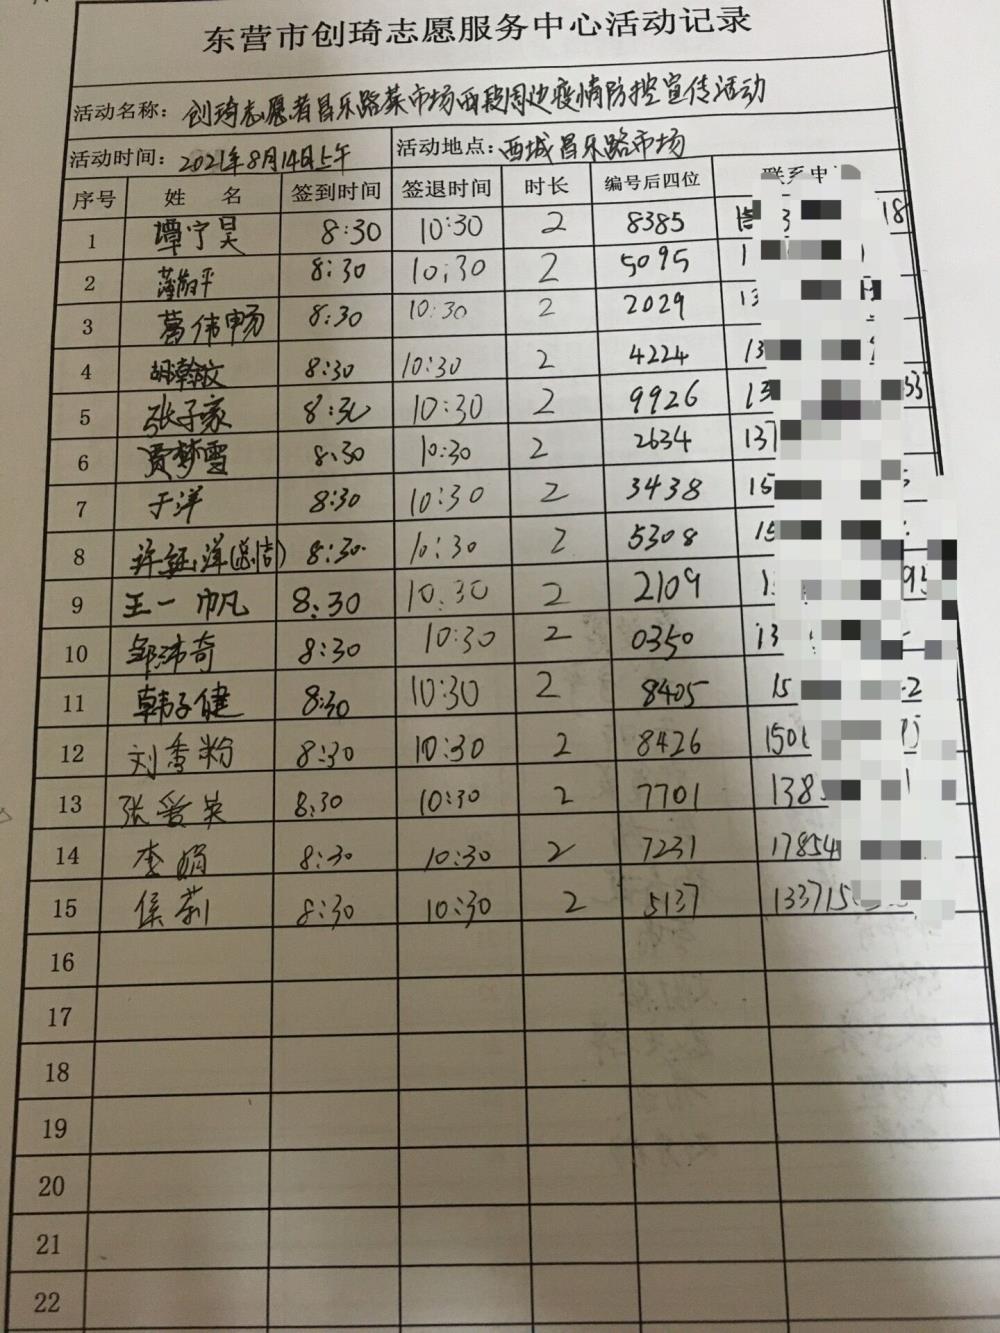 东营市创琦志愿服务中心活动记录
活动名称: 创琦志愿者昌乐路菜市场西段周边疫情防控宣传活动
活动时间: 2021年8月14日上午 活动地点: 西城昌乐路市场
序号 姓 名 签到时间 签退时间 时长 编号后四位 联系电
1 谭宁昊 8:30 10:30 2 8385 18
2 8:30 10:30 2 5095 1
3 葛伟畅 8:30 10:30 2 2029 13
4 胡翰文 8:30 10:30 2 4224 13
5 张子豪 8:30 10:30 2 9926 13 33
6 贾梦雪 8:30 10:30 2 2634 137
7 于洋 8:30 10:30 2 3438 15
8 许钰洋 8:30 10:30 2 5308 15
9 王一帆 8:30 10:30 2 2109 1 95
10 邹沛奇 8:30 10:30 2 0350 13
11 韩子健 8:30 10:30 2 8405 15 2
12 刘秀粉 8:30 10:30 2 8426 150
13 张爱英 8:30 10:30 2 7701 138
14 李娟 8:30 10:30 2 7231 17854
15 侯莉 8:30 10:30 2 5137 133715
16
17
18
19
20
21
22